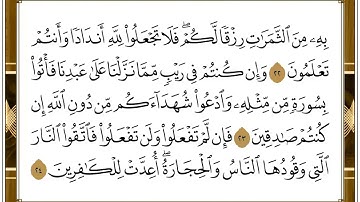 بِهِۦ مِنَ ٱلثَّمَرَٰتِ رِزْقًا لَّكُمْ ۖ فَلَا تَجْعَلُوا۟ لِلَّهِ أَندَادًا وَأَنتُمْ
تَعْلَمُونَ ٢٢ وَإِن كُنتُمْ فِى رَيْبٍ مِّمَّا نَزَّلْنَا عَلَىٰ عَبْدِنَا فَأْتُوا۟
بِسُورَةٍ مِّن مِّثْلِهِۦ وَٱدْعُوا۟ شُهَدَآءَكُم مِّن دُونِ ٱللَّهِ إِن
كُنتُمْ صَٰدِقِينَ ٢٣ فَإِن لَّمْ تَفْعَلُوا۟ وَلَن تَفْعَلُوا۟ فَٱتَّقُوا۟ ٱلنَّارَ
ٱلَّتِى وَقُودُهَا ٱلنَّاسُ وَٱلْحِجَارَةُ ۖ أُعِدَّتْ لِلْكَٰفِرِينَ ٢٤